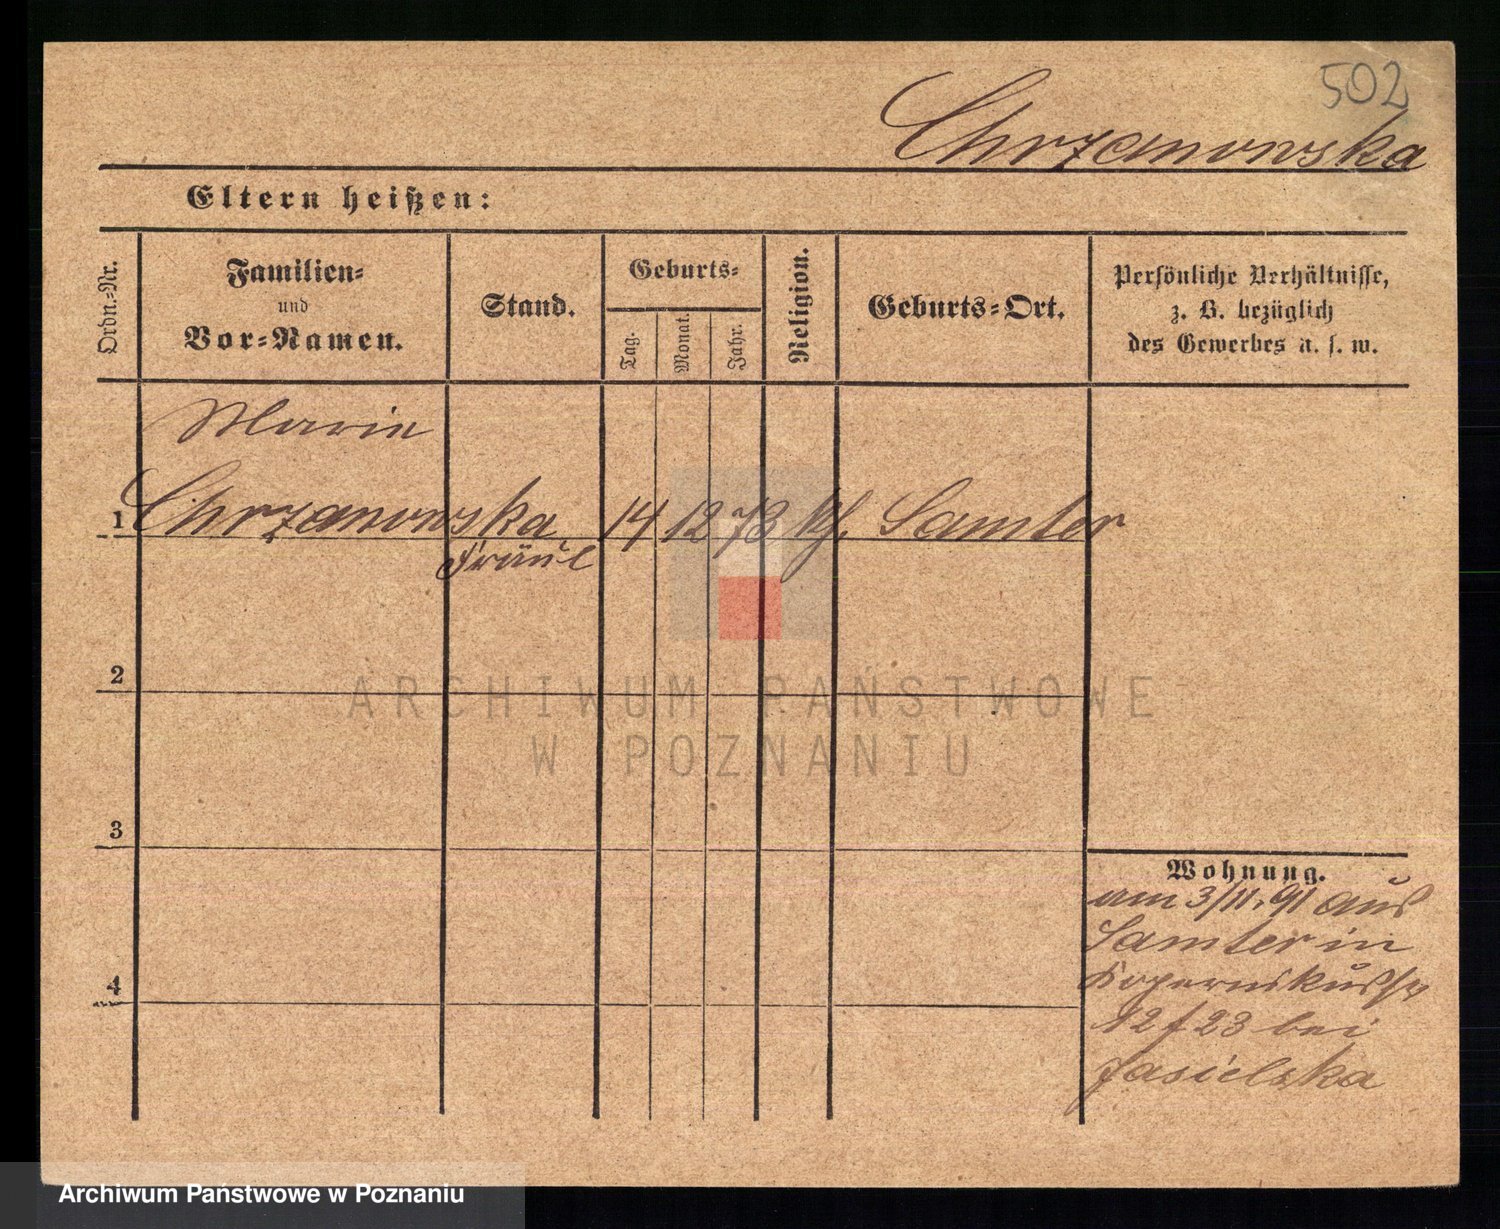 502
Chrzanowska
Eltern heißen:
Ordn.-Nr.
Familien-
und
Vor-Namen.
Stand.
Geburts-
Tag.
Monat.
Jahr.
Religion.
Geburts-Ort.
Persönliche Verhältnisse,
z. B. bezüglich
des Gewerbes u. s. w.
Marie
1 Chrzanowska 14 12 73 kf. Samter
Fräul
2
ARCHIWUM PAŃSTWOWE
W POZNANIU
3
Wohnung.
am 3/11.91 aus
Samter in
4
12 f 23 bei
Jasielska
Archiwum Państwowe w Poznaniu